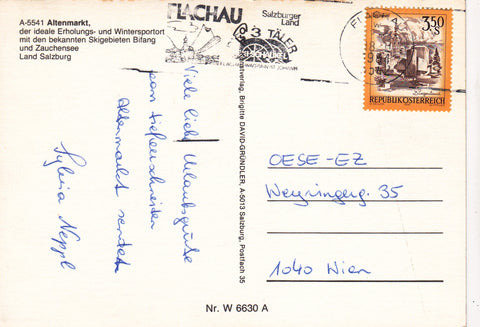 A-5541 Altenmarkt,
der ideale Erholungs- und Wintersportort
mit den bekannten Skigebieten Bifang
und Zauchensee
Land Salzburg
FLACHAU
Salzburger
Land
3 TÄLER
3,50
S
REPUBLIK ÖSTERREICH
Viele liebe Urlaubsgrüße
vom tiefverschneiten
Altenmarkt sendet
Sylvia Neppl
Brigitte DAVID-GRÜNDLER, A-5013 Salzburg, Postfach 35
OESE-EZ
Weyringerg. 35
1040 Wien
Nr. W 6630 A